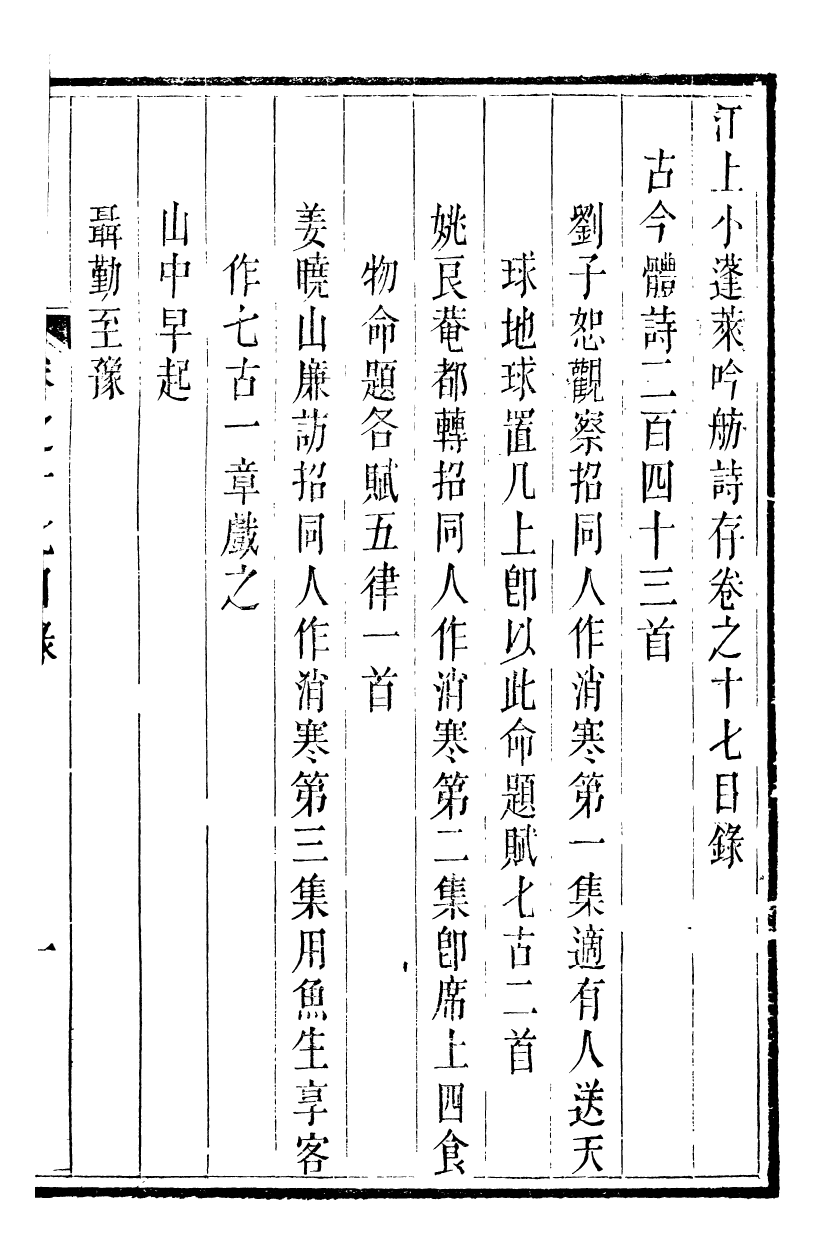 江上小蓬萊吟舫詩存卷之十七目錄
古今體詩二百四十三首
劉子恕觀察招同人作消寒第一集適有人送天
球地球置几上卽以此命題賦七古二首
姚艮菴都轉招同人作消寒第二集卽席上四食
物命題各賦五律一首
姜曉山廉訪招同人作消寒第三集用魚生享客
作七古一章戲之
山中早起
聶勤至豫
卷之十七目錄
一